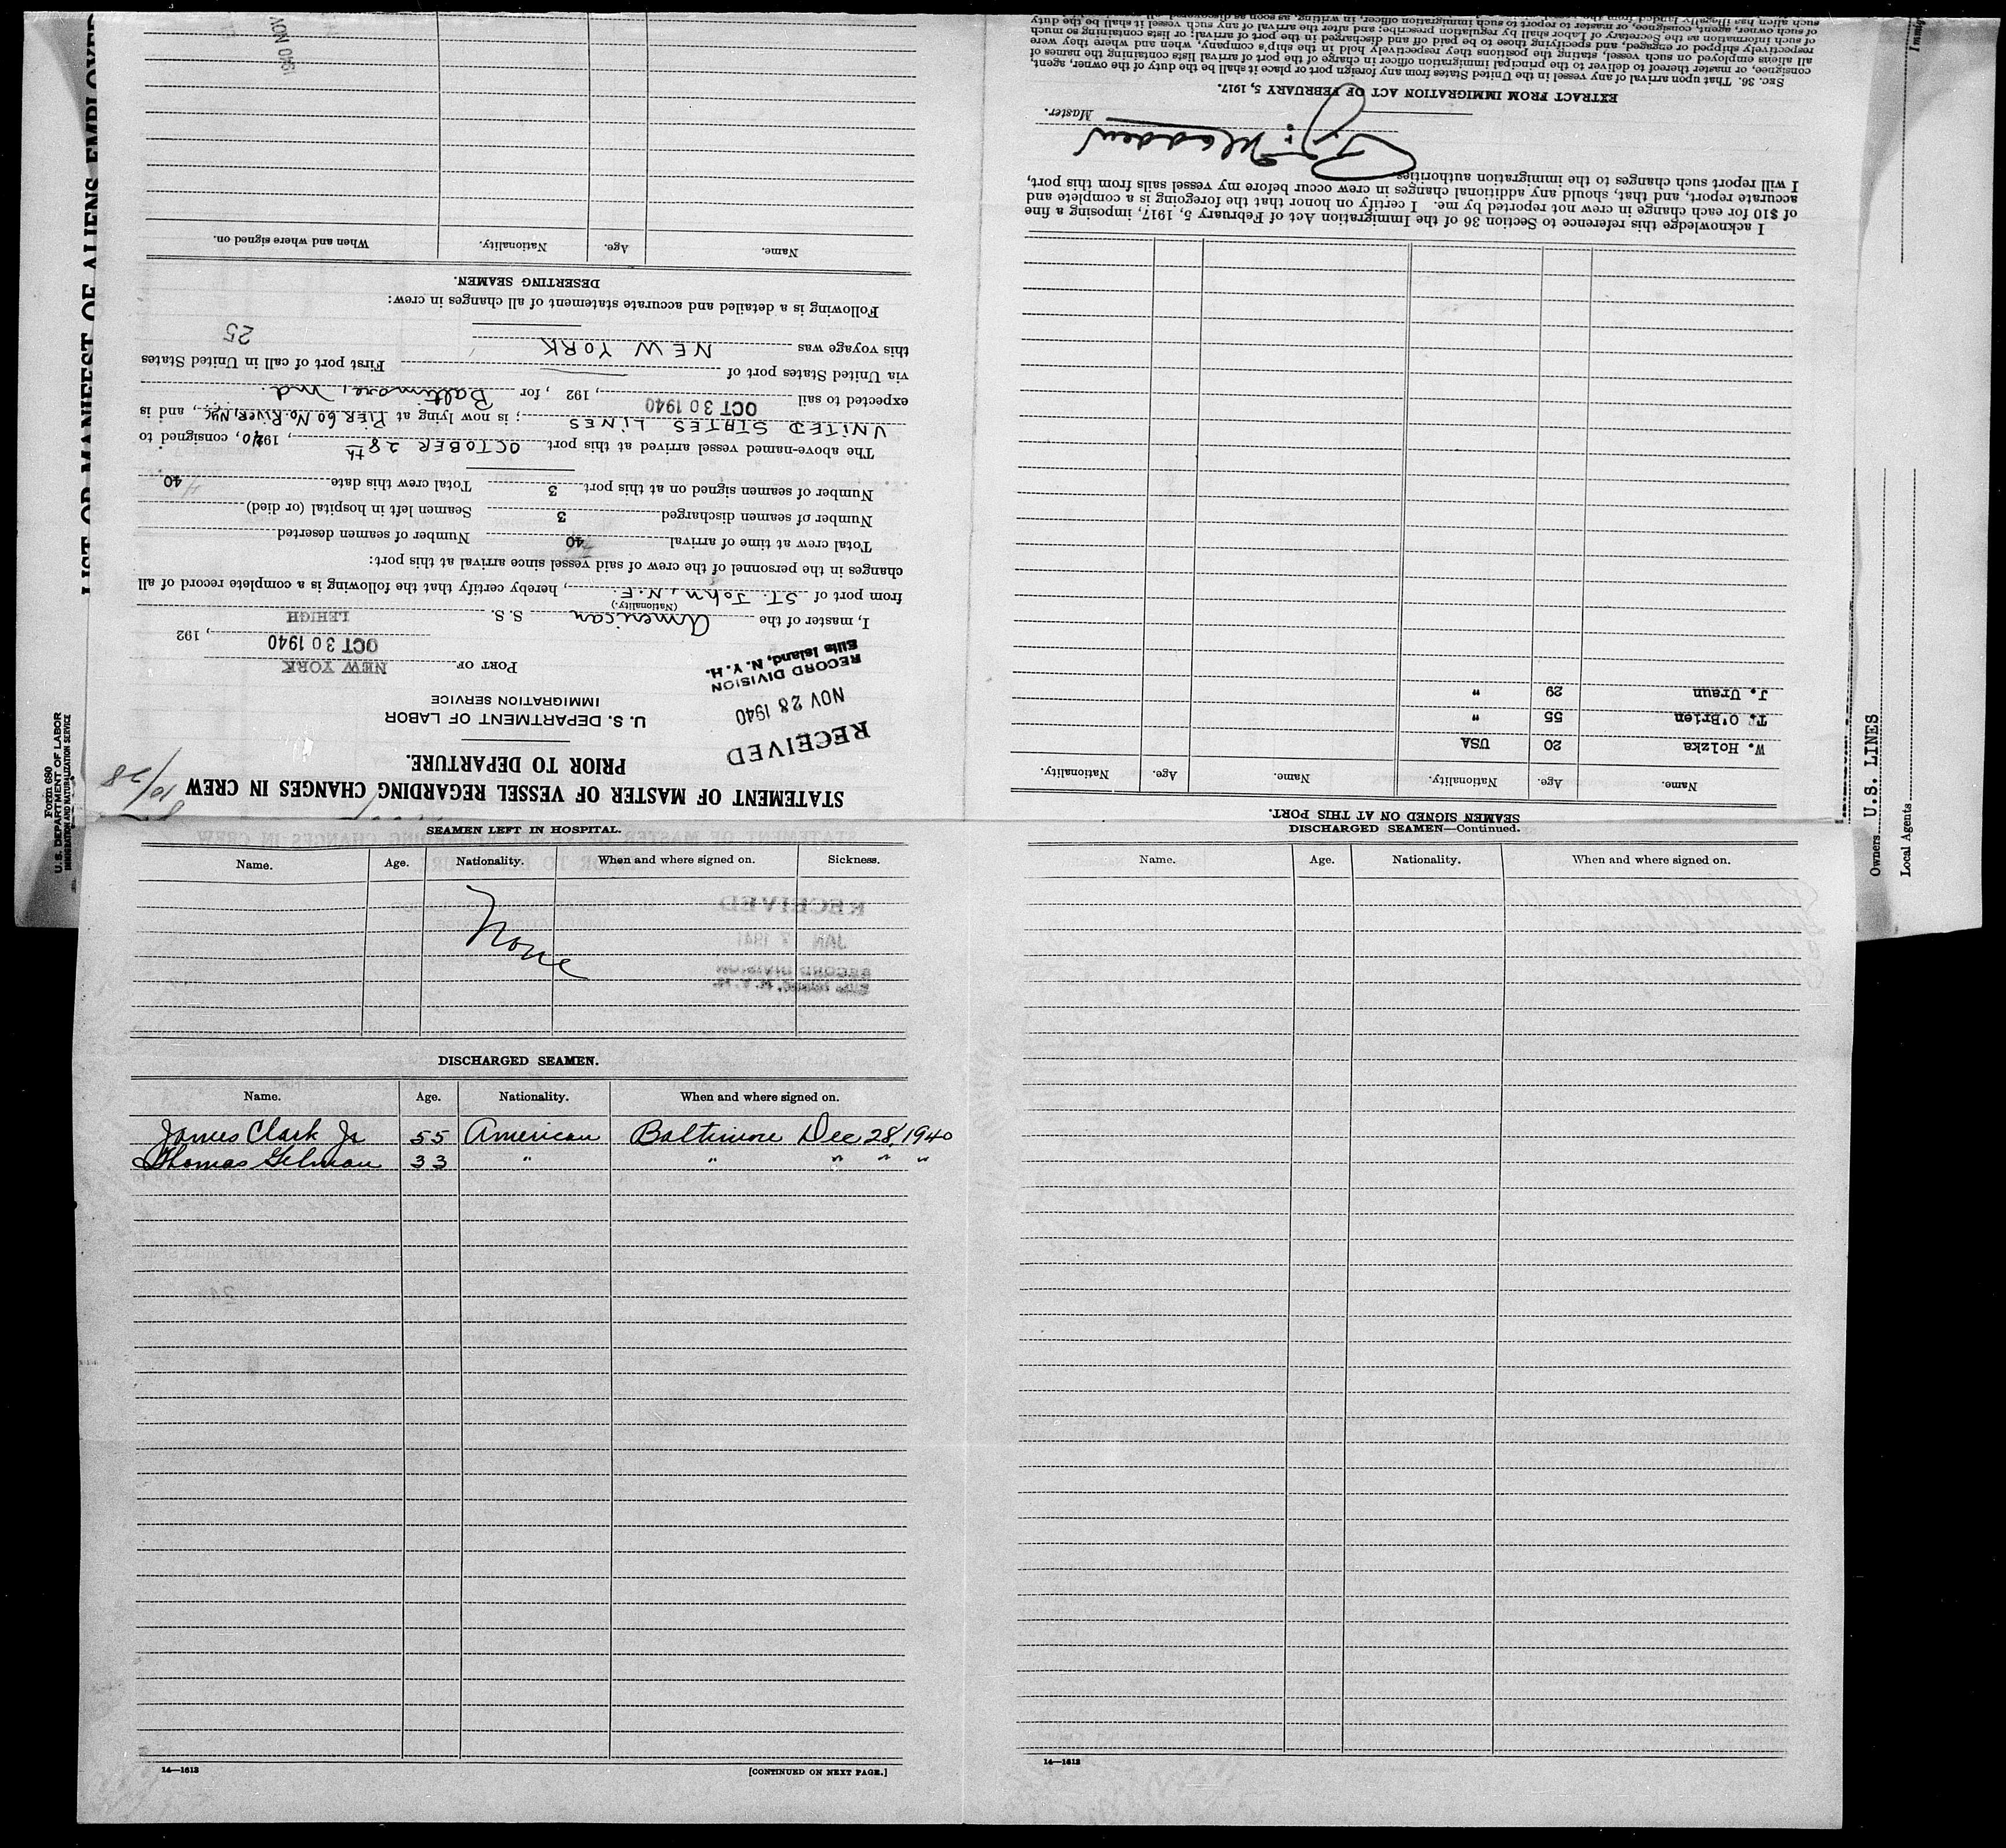 LIST OR MANIFEST OF ALIENS EMPLOYED
Form 680
U.S. DEPARTMENT OF LABOR
IMMIGRATION AND NATURALIZATION SERVICE
STATEMENT OF MASTER OF VESSEL REGARDING CHANGES IN CREW
PRIOR TO DEPARTURE.
10/28
U. S. DEPARTMENT OF LABOR
IMMIGRATION SERVICE
RECEIVED
NOV 28 1940
RECORD DIVISION
Ellis Island, N. Y. H.
PORT OF NEW YORK
OCT 30 1940, 192
I, master of the American S. S. LEHIGH
(Nationality.)
from port of ST. John, N.F., hereby certify that the following is a complete record of all
changes in the personnel of the crew of said vessel since arrival at this port:
Total crew at time of arrival 40 Number of seamen deserted
Number of seamen discharged 3 Seamen left in hospital (or died)
Number of seamen signed on at this port 3 Total crew this date 40
The above-named vessel arrived at this port OCTOBER 28th, 1940, consigned to
UNITED STATES LINES; is now lying at PIER 60 No. RIVER, NYC, and is
expected to sail OCT 30 1940, 192 , for Baltimore, Md.
via United States port of First port of call in United States
this voyage was NEW YORK
25
Following is a detailed and accurate statement of all changes in crew:
DESERTING SEAMEN.
Name. Age. Nationality. When and where signed on.
SEAMEN SIGNED ON AT THIS PORT.
Name. Age. Nationality. Name. Age. Nationality.
W. Holzka 20 USA
T. O'Brien 55 "
J. Ureun 29 "
I acknowledge this reference to Section 36 of the Immigration Act of February 5, 1917, imposing a fine
of $10 for each change in crew not reported by me. I certify on honor that the foregoing is a complete and
accurate report, and that, should any additional changes in crew occur before my vessel sails from this port,
I will report such changes to the immigration authorities.
Master.
EXTRACT FROM IMMIGRATION ACT OF FEBRUARY 5, 1917.
SEC. 36. That upon arrival of any vessel in the United States from any foreign port or place it shall be the duty of the owner, agent,
consignee, or master thereof to deliver to the principal immigration officer in charge of the port of arrival lists containing the names of
all aliens employed on such vessel, stating the positions they respectively hold in the ship's company, when and where they were
respectively shipped or engaged, and specifying those to be paid off and discharged in the port of arrival; or lists containing so much
of such information as the Secretary of Labor shall by regulation prescribe; and after the arrival of any such vessel it shall be the duty
of such owner, agent, consignee, or master to report to such immigration officer, in writing, as soon as discovered,
Owners U.S. LINES
Local Agents
SEAMEN LEFT IN HOSPITAL.
Name. Age. Nationality. When and where signed on. Sickness.
None
DISCHARGED SEAMEN.
Name. Age. Nationality. When and where signed on.
James Clark Jr 55 American Baltimore Dec 28, 1940
Thomas Gelman 33 " " " " "
14—1613
[CONTINUED ON NEXT PAGE.]
DISCHARGED SEAMEN—Continued.
Name. Age. Nationality. When and where signed on.
14—1613